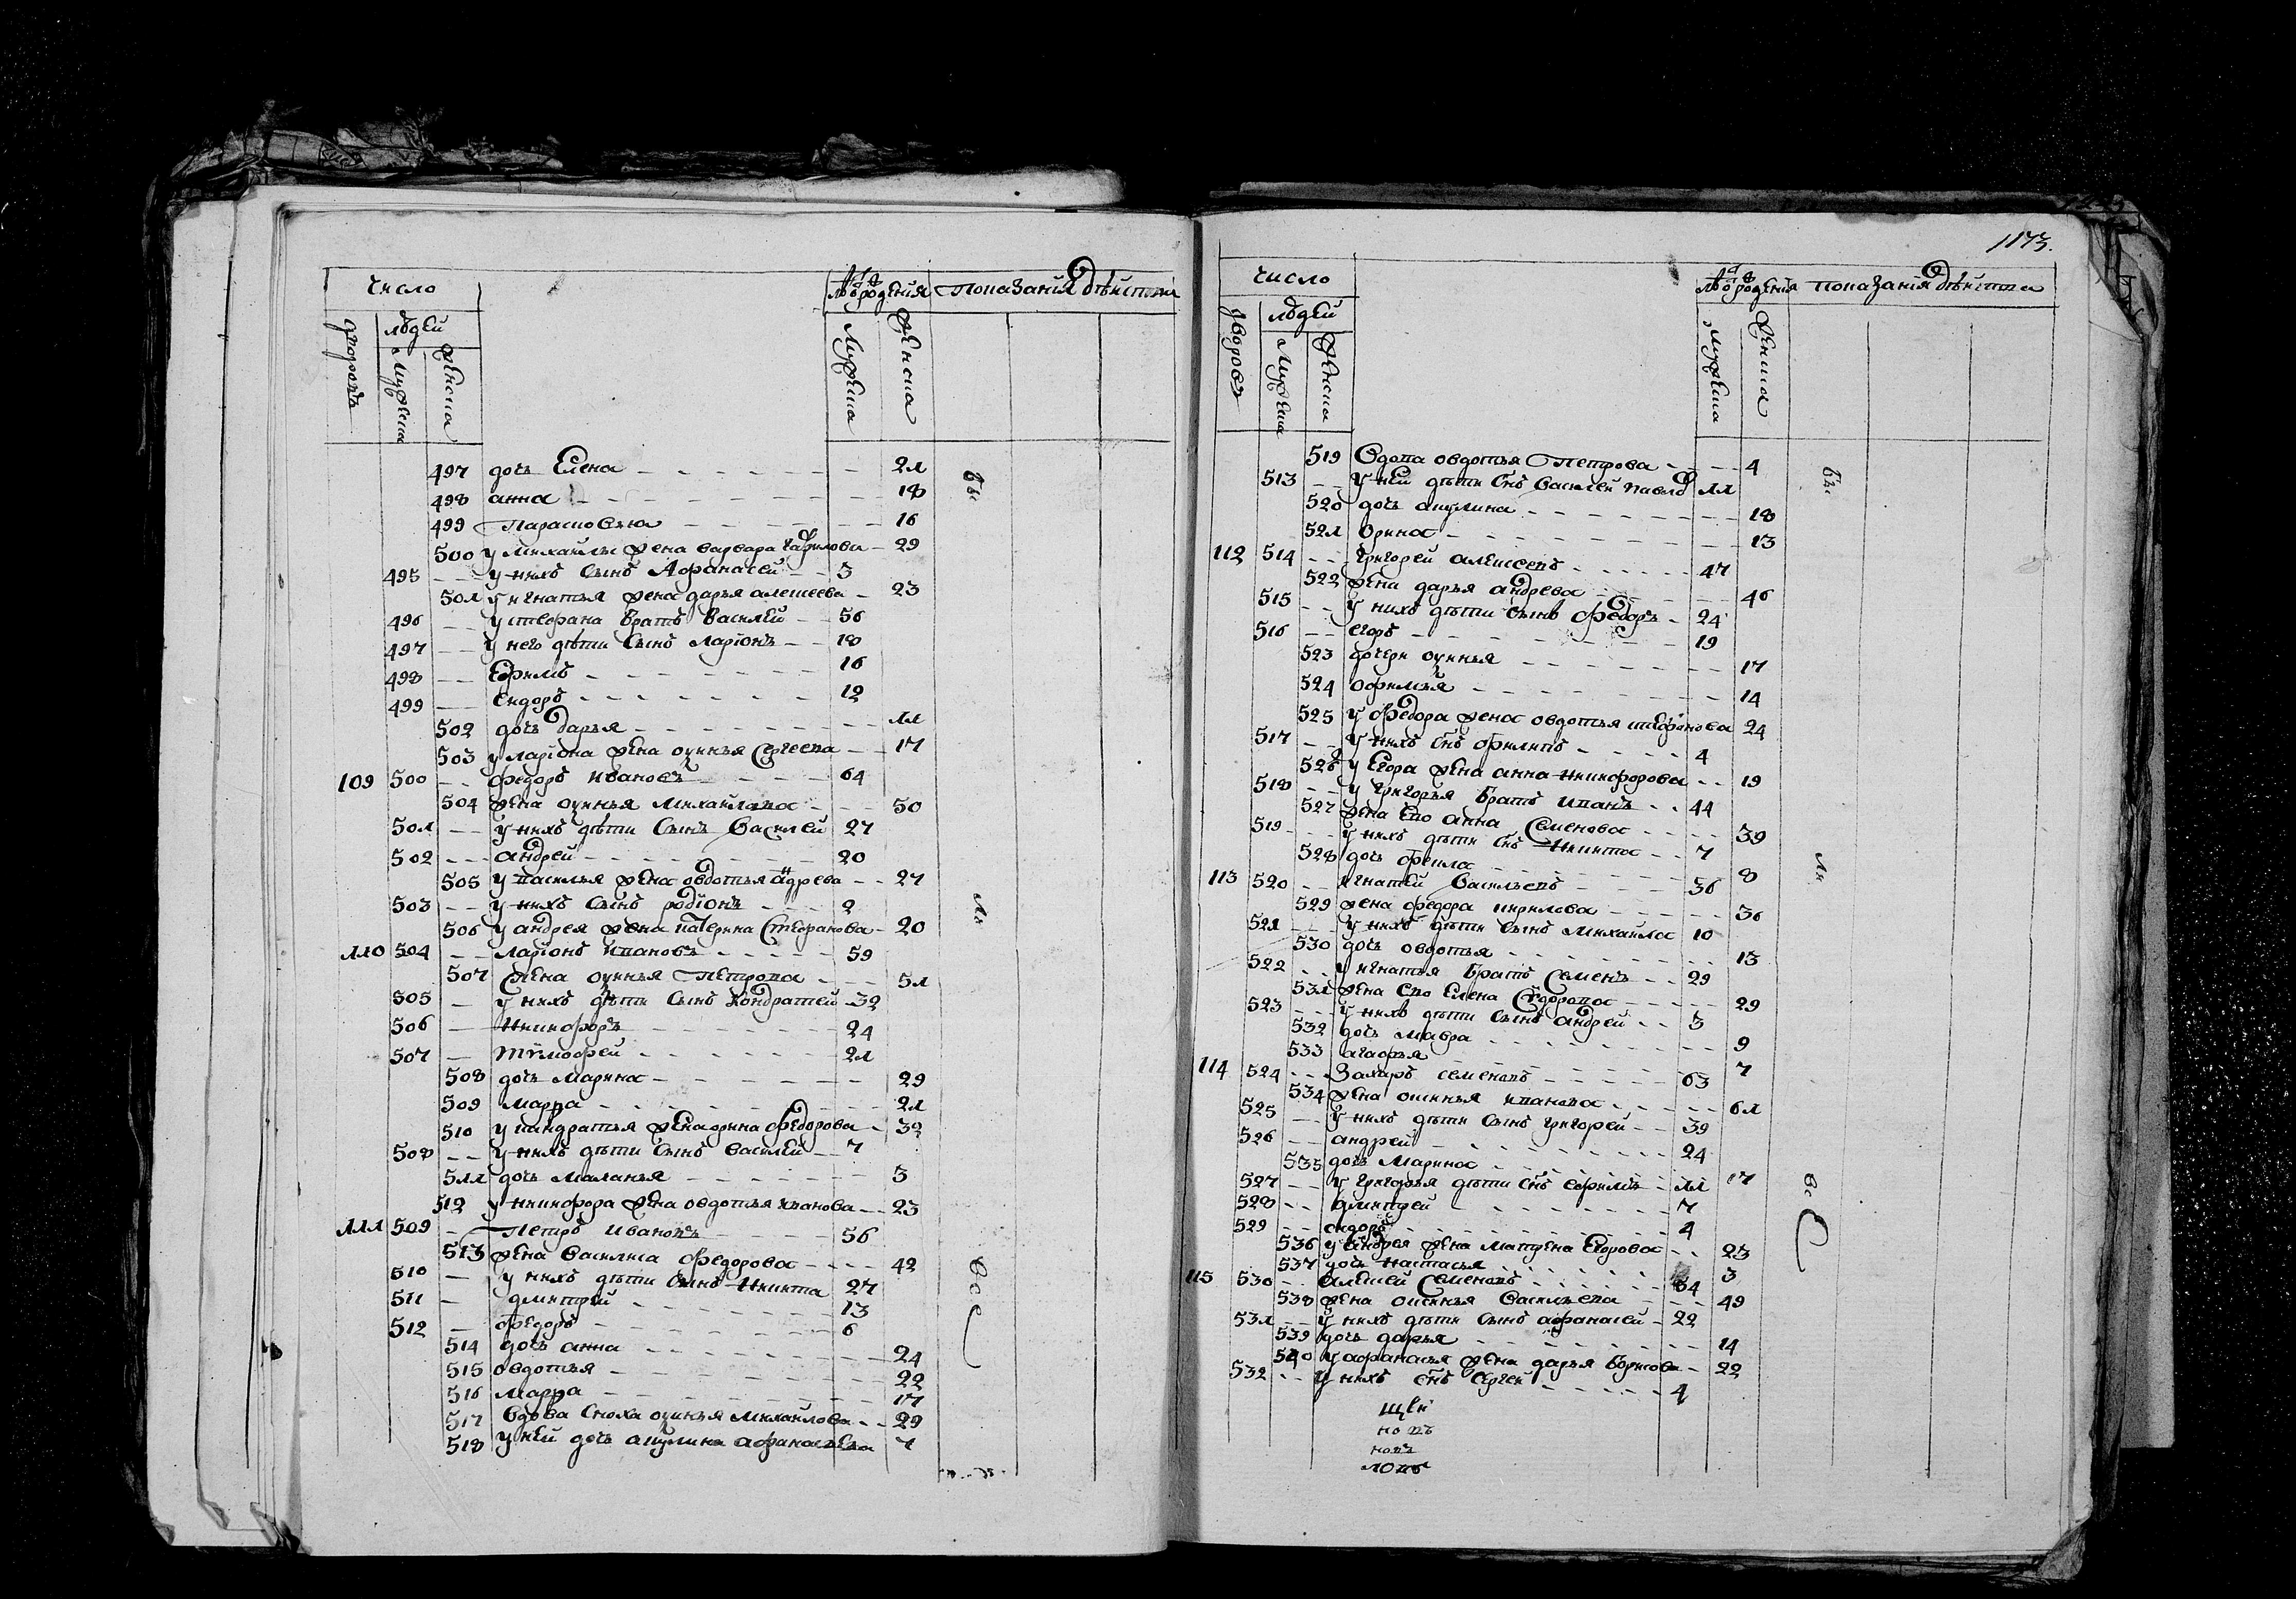 число
лѣта ѿ рожденія Показанія дѣйства
людей
дворовъ
мужеска
женска
мужеска
женска
497 дочь Елена 21
498 анна 18
499 Парасковья 16
500 у михайлы жена варвара гаврилова 29
495 у нихъ сынъ Афанасей 3
501 у игнатья жена дарья алексеева 23
496 у стефана братъ василей 56
497 у него дѣти сынъ ларіонъ 18
498 Ефимъ 16
499 сидоръ 12
502 дочь дарья 11
503 у ларіона жена аксинья Сергеева 17
109 500 федоръ ивановъ 64
504 жена аксинья михайлова 50
501 у нихъ дѣти сынъ Василей 27
502 андрей 20
505 у василья жена овдотья андрева 27
503 у нихъ сынъ родіонъ 2
506 у андрея жена катерина Стефанова 20
110 504 ларіонъ ивановъ 59
507 жена Петрова 51
505 у нихъ дѣти сынъ кондратей 32
506 никифоръ 24
507 тимофей 21
508 дочь марина 29
509 марфа 21
510 у кандратья жена федорова 32
508 у нихъ дѣти сынъ василей 7
511 дочь маланья 3
512 у никифора жена овдотья иванова 23
111 509 Петръ ивановъ 56
513 жена василиса федорова 42
510 у нихъ дѣти сынъ никита 27
511 дмитрей 13
512 федоръ 6
514 дочь анна 24
515 овдотья 22
516 марфа 17
517 вдова сноха михайлова 29
518 у ней дочь акулина афанасьева 7
бы
ли
все
1173.
число
лѣта ѿ рожденія показанія дѣйства
людей
дворовъ
мужеска
женска
мужеска
женска
519 вдова овдотья Петрова 4
513 у ней дѣти снъ василей павловъ 11
520 дочь акулина 18
521 орина 13
112 514 григорей алексеевъ 47
522 жена дарья андрева 46
515 у нихъ дѣти сынъ федоръ 24
516 егоръ 19
523 дочери 17
524 офимья 14
525 у федора жена овдотья стефанова 24
517 у нихъ снъ филипъ 4
526 у егора жена анна никифорова 19
518 у григорья братъ иванъ 44
527 жена ево анна Семенова 39
519 у нихъ дѣти снъ никита 7
528 дочь 8
113 520 игнатей васильевъ 36
529 жена федора кирилова 36
521 у нихъ дѣти сынъ михайла 10
530 дочь овдотья 13
522 у игнатья братъ семенъ 29
531 жена ево елена 29
523 у нихъ дѣти сынъ андрей 3
532 дочь мавра 9
533 агафья 7
114 524 Захаръ семеновъ 63
534 жена иванова 61
525 у нихъ дѣти сынъ григорей 39
526 андрей 24
535 дочь марина 17
527 у григорья дѣти снъ ефимъ 11
528 дмитрей 7
529 сидоръ 4
536 у андрея жена матрена егорова 23
537 дочь настасья 3
115 530 алексей семеновъ 54
538 жена васильева 49
531 у нихъ дѣти сынъ афанасей 22
539 дочь дарья 14
540 у афанасья жена дарья борисова 22
532 у нихъ снъ сергей 4
бы
ли
все